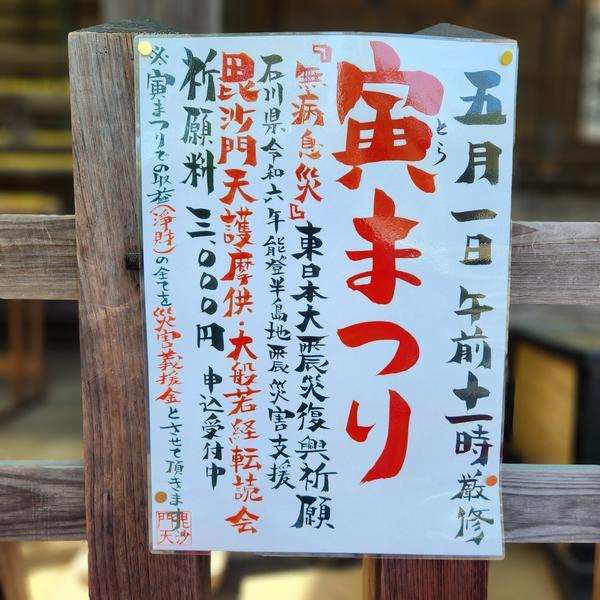 五月一日 午前十一時 厳修
寅まつり
とら
『無病息災』 東日本大震災復興祈願
石川県令和六年能登半島地震災害支援
毘沙門天護摩供・大般若経転読会
祈願料 三、〇〇〇円 申込受付中
※寅まつりでの収益(浄財)の全てを災害義援金とさせて頂きます
毘沙門天